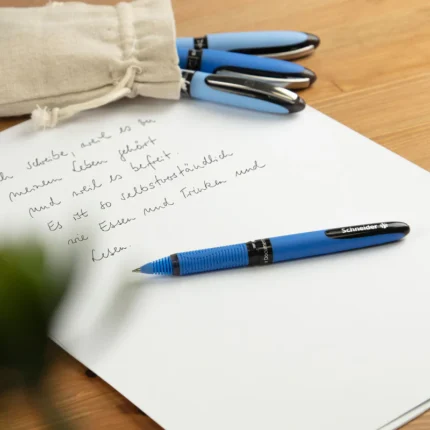 ch schreibe, weil es zu
meinem Leben gehört
und weil es befreit.
Es ist so selbstverständlich
wie Essen und Trinken und
Lesen.
Schneider